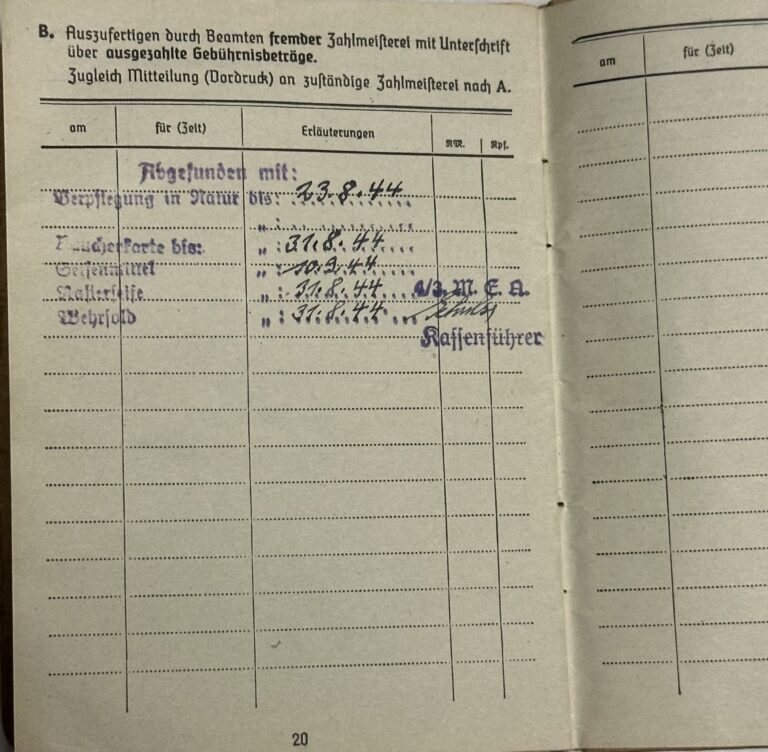 B. Auszufertigen durch Beamten fremder Zahlmeisterei mit Unterschrift
über ausgezahlte Gebührnisbeträge.
Zugleich Mitteilung (Vordruck) an zuständige Zahlmeisterei nach A.
am für (Zeit) Erläuterungen RM. Rpf.
Abgefunden mit:
Verpflegung in Natur bis: 23.8.44
„ :
Raucherkarte bis: „ : 31.8.44
Seifenmittel „ : 10.9.44
Rasierseife „ : 31.8.44 4/3. M. E. A.
Wehrsold „ : 31.8.44
Kassenführer
20
am für (Zeit)